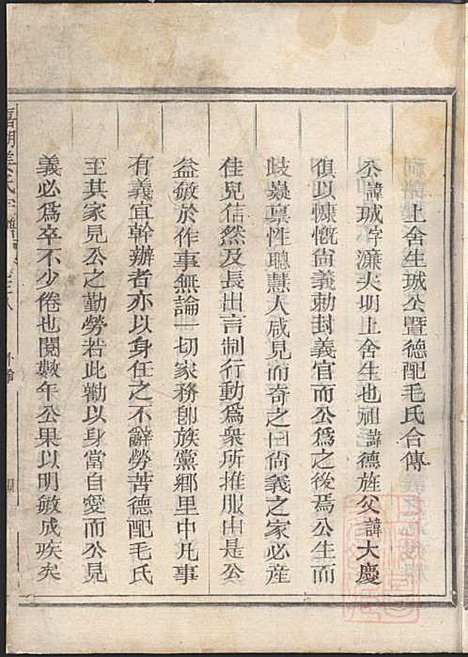 上舍生珹公暨德配毛氏合傳
公諱珹字濂夫明上舍生也祖諱德旌父諱大慶
俱以慷慨尙義勅封義官而公爲之後焉公生而
歧嶷稟性聰慧人咸見而奇之曰尙義之家必產
佳兒信然及長出言制行動爲衆所推服由是公
益敏於作事無論一切家務卽族黨鄉里中凡事
有義宜幹辦者亦以身任之不辭勞苦德配毛氏
至其家見公之勤勞若此勸以身當自愛而公見
義必爲卒不少倦也閱數年公果以明敏成疾矣